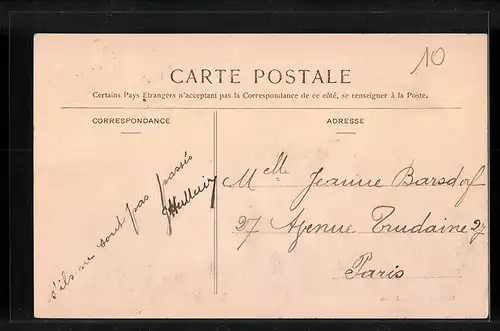 10
CARTE POSTALE
Certains Pays Etrangers n'acceptant pas la Correspondance de ce côté, se renseigner à la Poste.
CORRESPONDANCE
s'ils ne sont pas passés
ADRESSE
Melle Jeanne Barsdorf
27 Avenue Trudaine 27
Paris